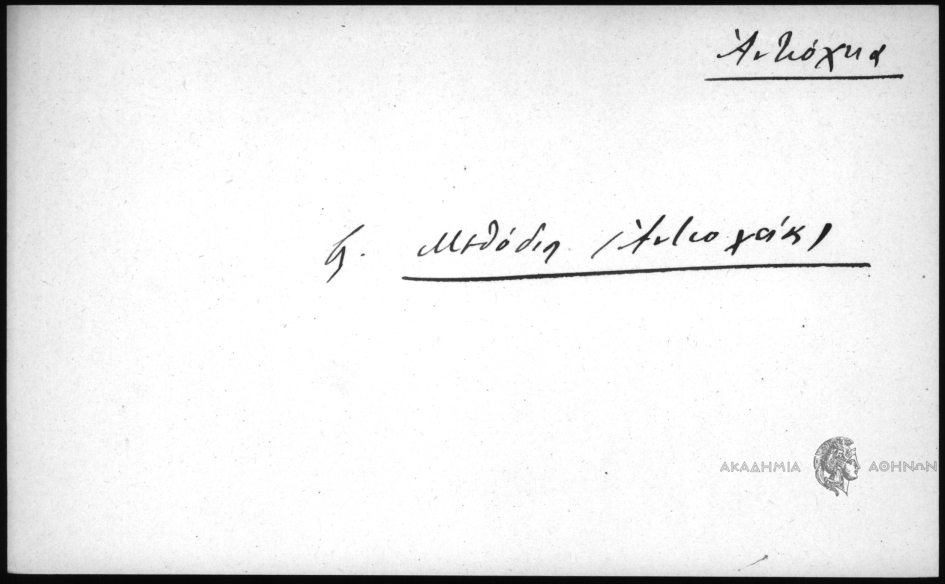 Ἀντιόχεια
βλ. Μεθόδιος (Ἀντιοχείας)
ΑΚΑΔΗΜΙΑ ΑΘΗΝΩΝ